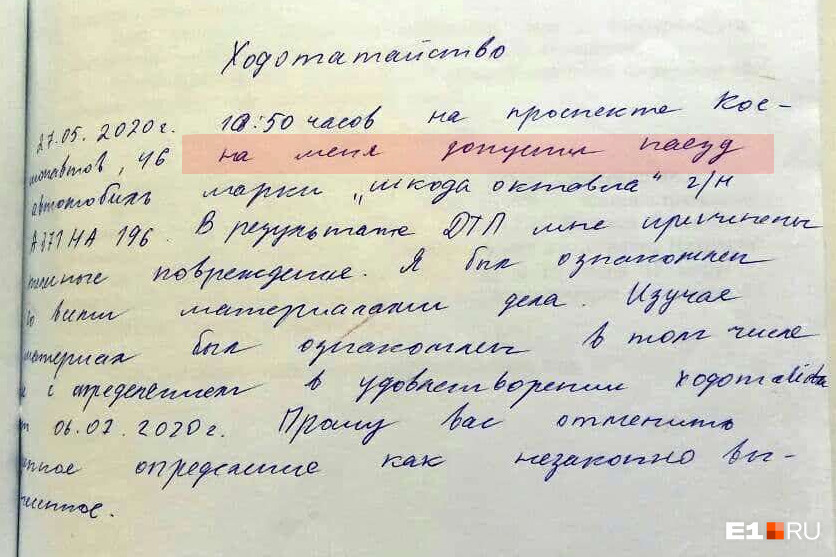 Ходотатайство
27.05.2020г. 10:50 часов на проспекте Кос-
монавтов, 46 на меня допустил наезд
автомобиль марки „шкода октавиа" г/н
А371НА 196. В результате ДТП мне причинены
телесные повреждение. Я был ознакомлен
со всеми материалами дела. Изучае
материал был ознакомлен в том числе
и с определением в удовлетворении ходота
от 06.07.2020г. Прошу вас отменить
данное определение как незаконно вы-
несенное.
E1.RU